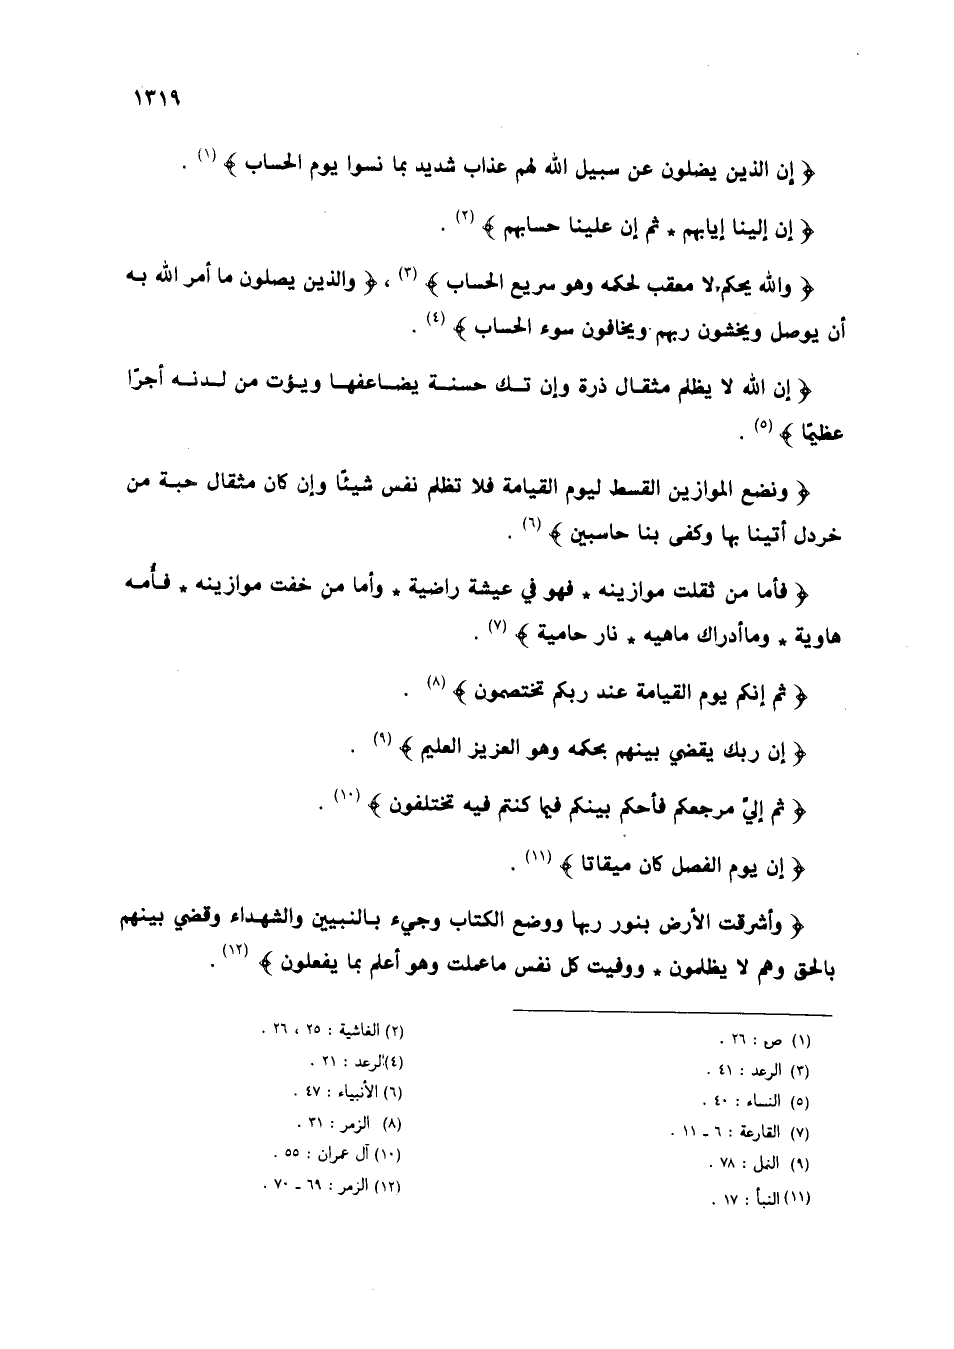 ١٣١٩
﴿ إن الذين يضلون عن سبيل الله لهم عذاب شديد بما نسوا يوم الحساب ﴾ (١) .
﴿ إن إلينا إيابهم * ثم إن علينا حسابهم ﴾ (٢) .
﴿ والله يحكم لا معقب لحكمه وهو سريع الحساب ﴾ (٣) ، ﴿ والذين يصلون ما أمر الله به
أن يوصل ويخشون ربهم ويخافون سوء الحساب ﴾ (٤) .
﴿ إن الله لا يظلم مثقال ذرة وإن تك حسنة يضاعفها ويؤت من لدنه أجرًا
عظيمًا ﴾ (٥) .
﴿ ونضع الموازين القسط ليوم القيامة فلا تظلم نفس شيئًا وإن كان مثقال حبة من
خردل أتينا بها وكفى بنا حاسبين ﴾ (٦) .
﴿ فأما من ثقلت موازينه * فهو في عيشة راضية * وأما من خفت موازينه * فأُمه
هاوية * وماأدراك ماهيه * نار حامية ﴾ (٧) .
﴿ ثم إنكم يوم القيامة عند ربكم تختصمون ﴾ (٨) .
﴿ إن ربك يقضي بينهم بحكمه وهو العزيز العليم ﴾ (٩) .
﴿ ثم إليّ مرجعكم فأحكم بينكم فيما كنتم فيه تختلفون ﴾ (١٠) .
﴿ إن يوم الفصل كان ميقاتا ﴾ (١١) .
﴿ وأشرقت الأرض بنور ربها ووضع الكتاب وجيء بالنبيين والشهداء وقضي بينهم
بالحق وهم لا يظلمون * ووفيت كل نفس ماعملت وهو أعلم بما يفعلون ﴾ (١٢) .
(١) ص : ٢٦ .
(٢) الغاشية : ٢٥ ، ٢٦ .
(٣) الرعد : ٤١ .
(٤) الرعد : ٢١ .
(٥) النساء : ٤٠ .
(٦) الأنبياء : ٤٧ .
(٧) القارعة : ٦ ـ ١١ .
(٨) الزمر : ٣١ .
(٩) النمل : ٧٨ .
(١٠) آل عمران : ٥٥ .
(١١) النبأ : ١٧ .
(١٢) الزمر : ٦٩ ـ ٧٠ .